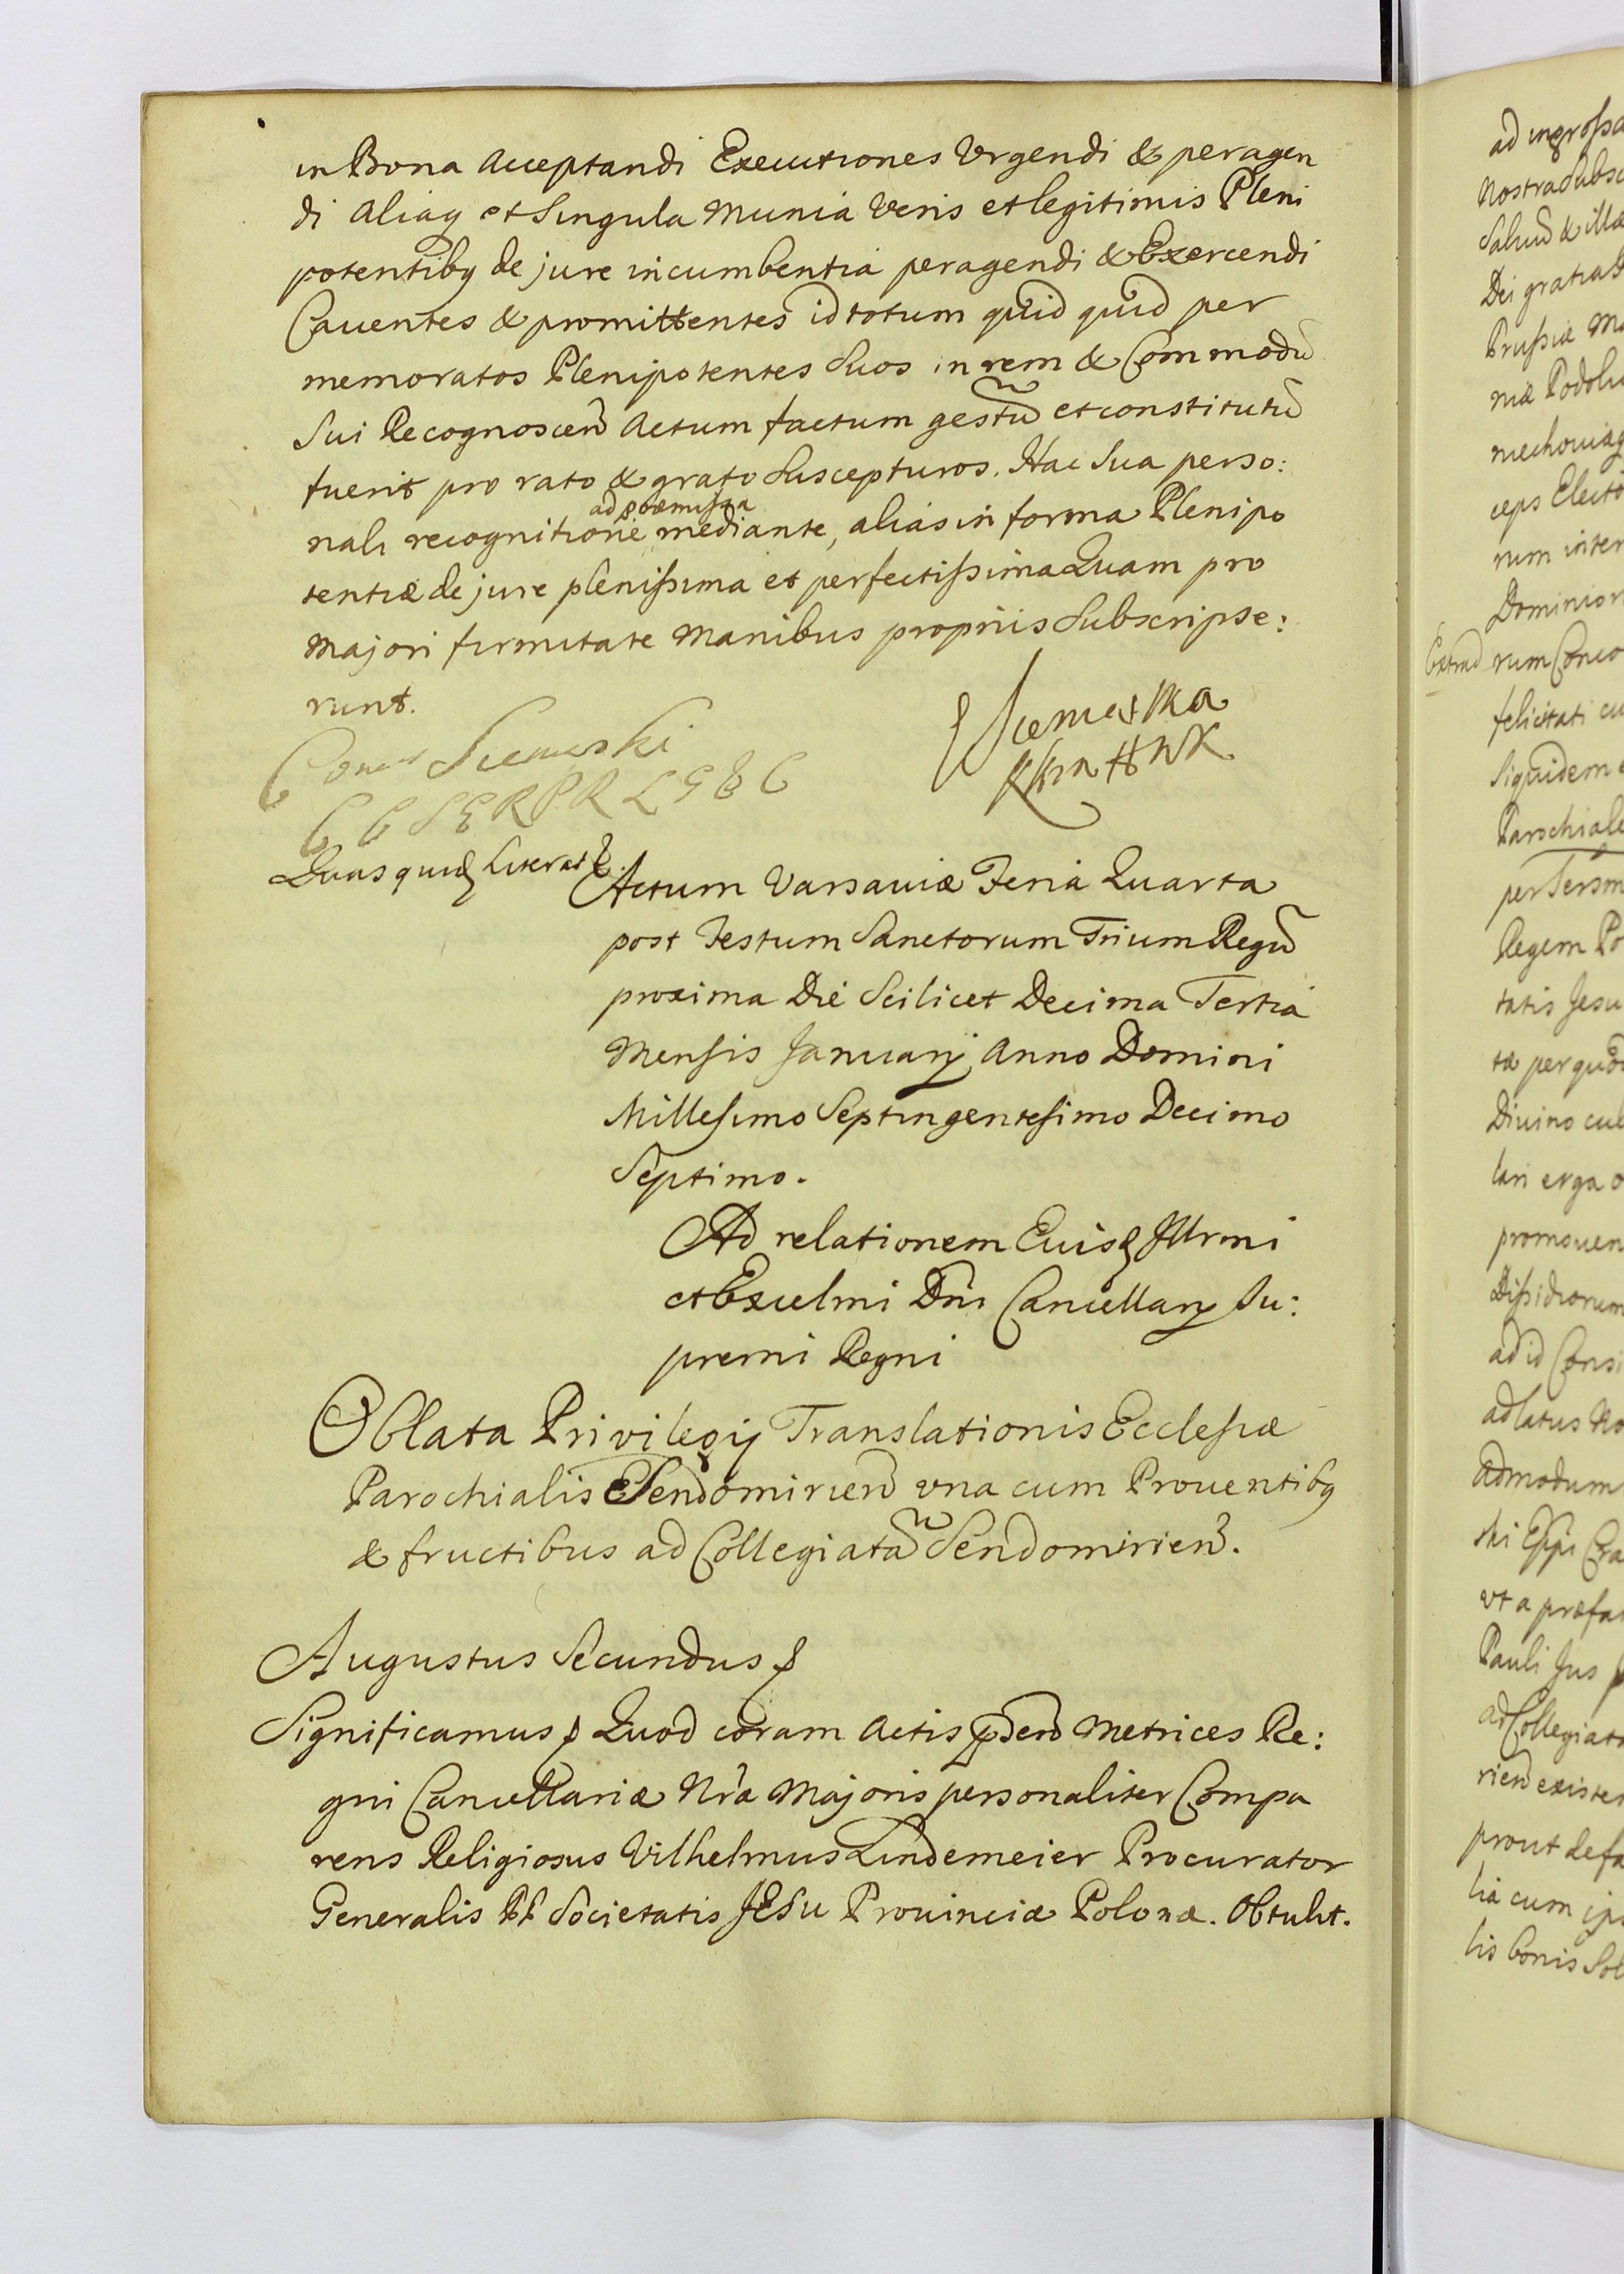 in Bona Acceptandi Executiones Vrgendi & peragen
di Aliaq et Singula Munia Veris et legitimis Pleni
potentibq de jure incumbentia peragendi & Exercendi
Cauentes & promittentes id totum quid quid per
memoratos Plenipotentes Suos in rem & Commodũ
Sui Recognoscen Actum factum gestũ et constitutũ
fuerit pro rato & grato Suscepturos. Hac Sua perso:
ad præmissa
nali recognitione mediante, alias in forma Plenipo
tentiæ de jure plenissima et perfectissima Quam pro
Majori firmitate Manibus propriis Subscripse:
runt.
Siemienska
Siemieski
Quas quid Literas
Actum Varsauiæ Feria Quarta
post Festum Sanctorum Trium Regũ
proxima Die Scilicet Decima Tertia
Mensis Januarij Anno Domini
Millesimo Septingentesimo Decimo
Septimo.
Ad relationem Illrmi
et Excelmi Dni Cancellarij Su:
premi Regni
Oblata Privilegij Translationis Ecclesiæ
Parochialis Sendomirien una cum Prouentibq
& fructibus ad Collegiatã Sendomirien.
Augustus Secundus
Significamus Quod coram Actis Metrices Re:
gni Cancellariæ Nræ Majoris personaliter Compa
rens Religiosus Vilhelmus Lindemeier Procurator
Generalis PP Societatis JEsu Prouinciæ Polonæ. Obtulit.
ad ingrossa
Nostra Subsc
Salus & illæ
Dei gratia
Prussiæ Ma
niæ Podoli
ceps Electo
rum inter
Dominior
Extrad rum Conco
felicitati cu
Siquidem
Parochiale
Regem Po
tatis Jesu
tæ per quod
Diuino cul
lari erga o
promouen
Dissidiorum
ad id Consi
ad latus No
admodum
ski Eppi Cra
vt a præfa
Pauli Jus
ad Collegiata
rien existen
prout de fa
lia cum ips
lis bonis Sol